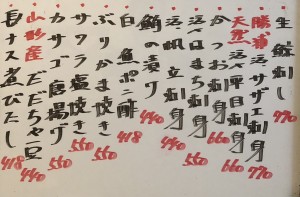 生鯨刺し 770
勝浦 活サザエ刺身 770
天然 活〆平目刺身 660
かつお刺身 660
刺身 550
活帆立刺身 440
漬け 440
白魚ポン酢 418
ぶりかま塩焼き 550
サワラ塩焼き 550
カサゴ唐揚げ 550
山形産 だだちゃ豆 440
長ナス煮びたし 418